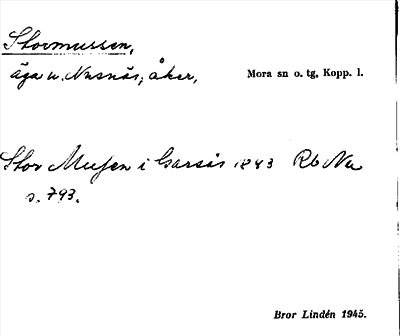 Stormussen,
äga u. Nusnäs; åker, Mora sn o. tg, Kopp. l.
Stor Mussen i Garsås 1843 Rb Na
s. 793.
Bror Lindén 1945.